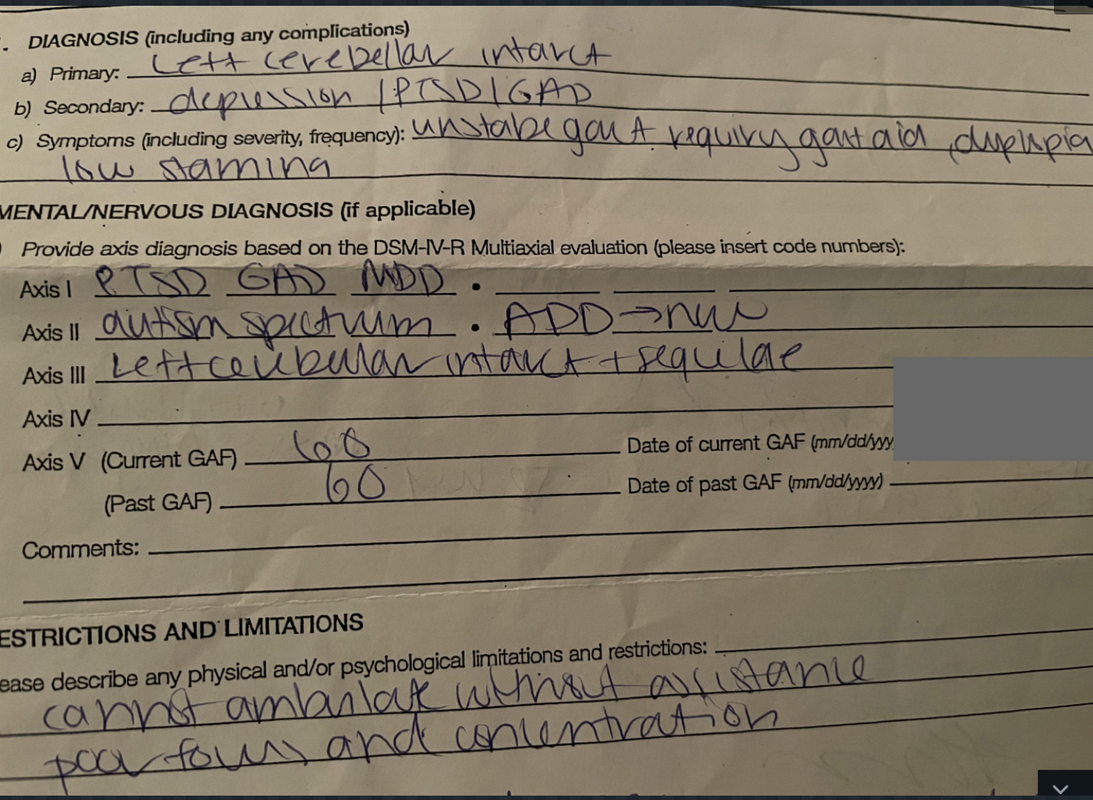 . DIAGNOSIS (including any complications)
a) Primary: Left cerebellar infarct
b) Secondary: depression / PTSD / GAD
c) Symptoms (including severity, frequency): unstabe gait requiry gait aid, diplopia
low stamina
MENTAL/NERVOUS DIAGNOSIS (if applicable)
) Provide axis diagnosis based on the DSM-IV-R Multiaxial evaluation (please insert code numbers):
Axis I PTSD GAD MDD .
Axis II autism spectrum . ADD → new
Axis III Left cerebellar infarct + sequelae
Axis IV
Axis V (Current GAF) 60 Date of current GAF (mm/dd/yyy
(Past GAF) 60 Date of past GAF (mm/dd/yyyy)
Comments:
ESTRICTIONS AND LIMITATIONS
ease describe any physical and/or psychological limitations and restrictions:
cannot ambulate without assistance
poor focus and concentration